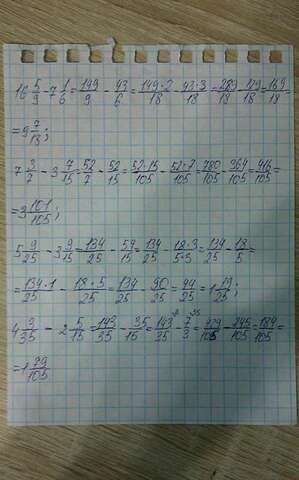 16 5/9 - 7 1/6 = 149/9 - 43/6 = 149·2/18 - 43·3/18 = 289/18 - 129/18 = 169/18 =
= 9 7/18;
7 3/7 - 3 7/15 = 52/7 - 52/15 = 52·15/105 - 52·7/105 = 780/105 - 364/105 = 416/105 =
= 3 101/105;
5 9/25 - 3 9/15 = 134/25 - 54/15 = 134/25 - 18·3/5·3 = 134/25 - 18/5 =
= 134·1/25 - 18·5/25 = 134/25 - 90/25 = 44/25 = 1 19/25;
4 3/35 - 2 5/15 = 143/35 - 35/15 = 143/35 - 7/3 = 429/105 - 245/105 = 184/105 =
= 1 79/105